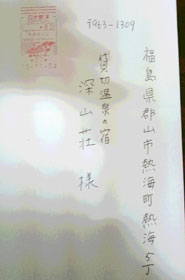 〒963-1309
福島県郡山市熱海町熱海5丁
貸切温泉の宿
深山荘 様